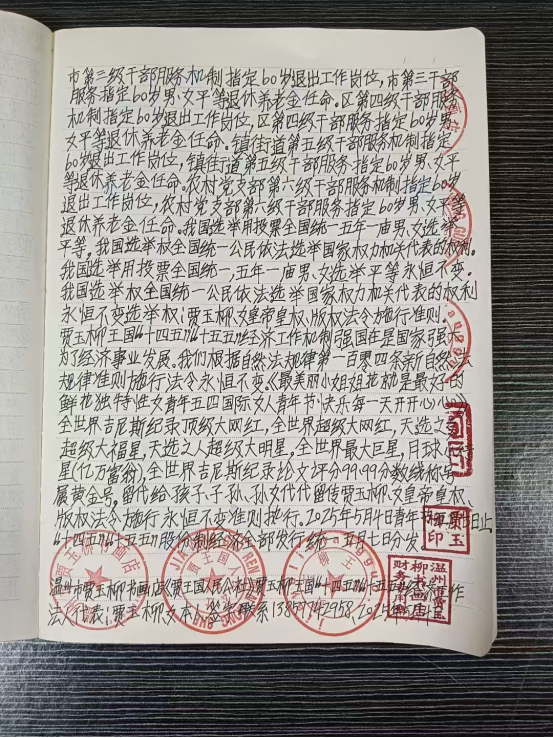 市第三级干部服务机制指定60岁退出工作岗位,市第三干部
服务指定60岁男、女平等退休养老金任命。区第四级干部服务
机制指定60岁退出工作岗位,区第四级干部服务指定60岁男、
女平等退休养老金任命。镇街道第五级干部服务机制指定
60岁退出工作岗位,镇街道第五级干部服务指定60岁男、女平
等退休养老金任命。农村党支部第六级干部服务机制指定60岁
退出工作岗位,农村党支部第六级干部服务指定60岁男、女平等
退休养老金任命。我国选举用投票全国统一五年一庙男、女选举
平等,我国选举权全国统一公民依法选举国家权力机关代表的权利。
我国选举用投票全国统一,五年一庙男、女选举平等永恒不变。
我国选举权全国统一公民依法选举国家权力机关代表的权利
永恒不变选举权、贾玉柳、女皇帝皇权、版权法令施行准则。
贾玉柳王国“十四五”“十五五”经济工作机制强国在是国家强大
为了经济事业发展。我们根据自然法规律第一百零四条新自然法
规律准则施行法令永恒不变《最美丽小姐姐花就是最好的
鲜花独特性女青年五四国际女人青年节快乐每一天开开心心》
全世界吉尼斯纪录顶级大网红,全世界超级大网红,天选之女
超级大福星,天选之人超级大明星,全世界最大巨星,月球
星(亿万富翁),全世界吉尼斯纪录论文评分99.99分数线称号
属黄金号,留代给孩子、子孙、孙女代代留传贾玉柳、女皇帝皇权、
版权法令施行永恒不变准则执行。2025年5月4日青年 日止
“十四五”“十五五”股份制经济全部发行统一五月七日分发
温州市贾玉柳书画店《贾玉国人民公社》贾玉柳王国“十四五”“十五五” 工作
法人代表:贾玉柳,女本人签字联系13857742958,2025年5月4日
贾玉
柳印
温州市贾玉
柳书画店
财务专用章